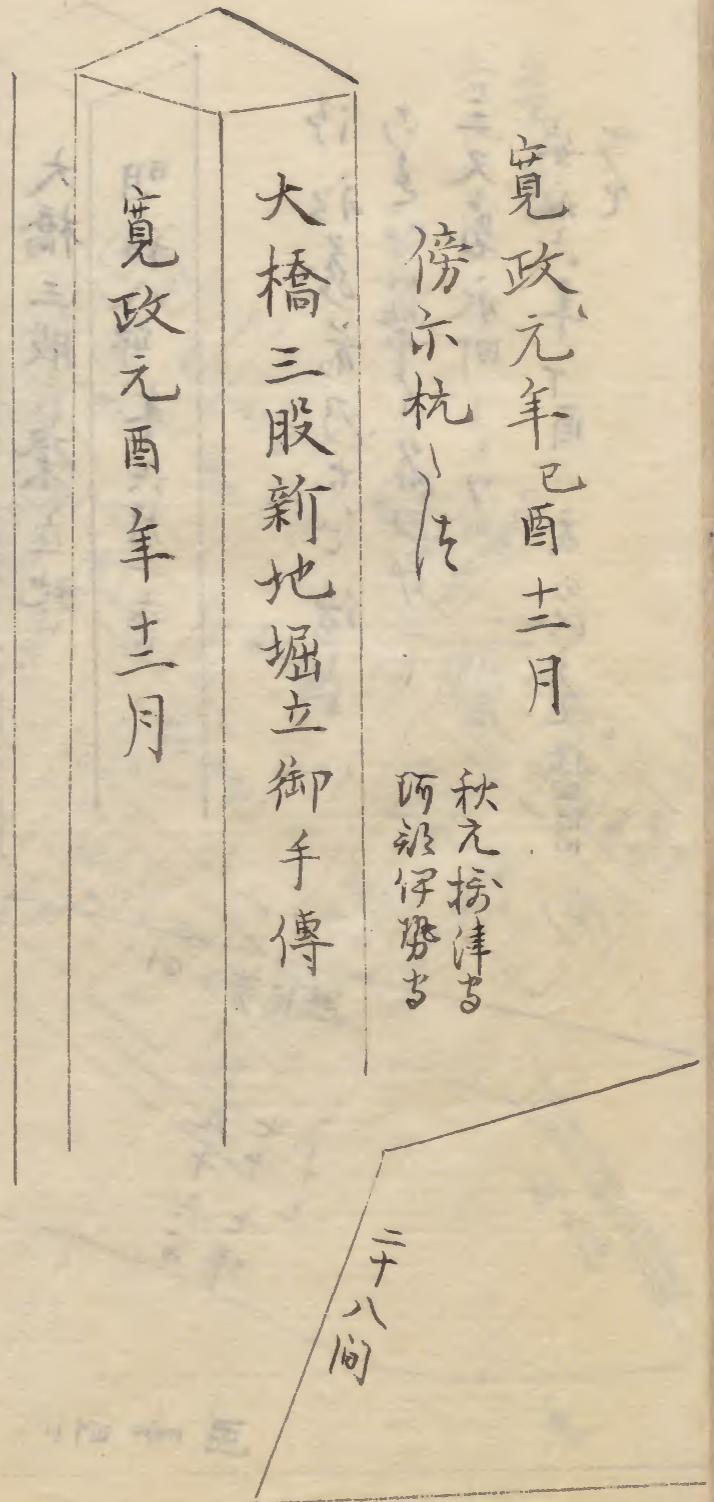 寛政元年己酉十二月
傍示杭之法
秋元摂津守
阿部伊勢守
大橋三股新地堀立御手傳
寛政元酉年十二月
二十八間